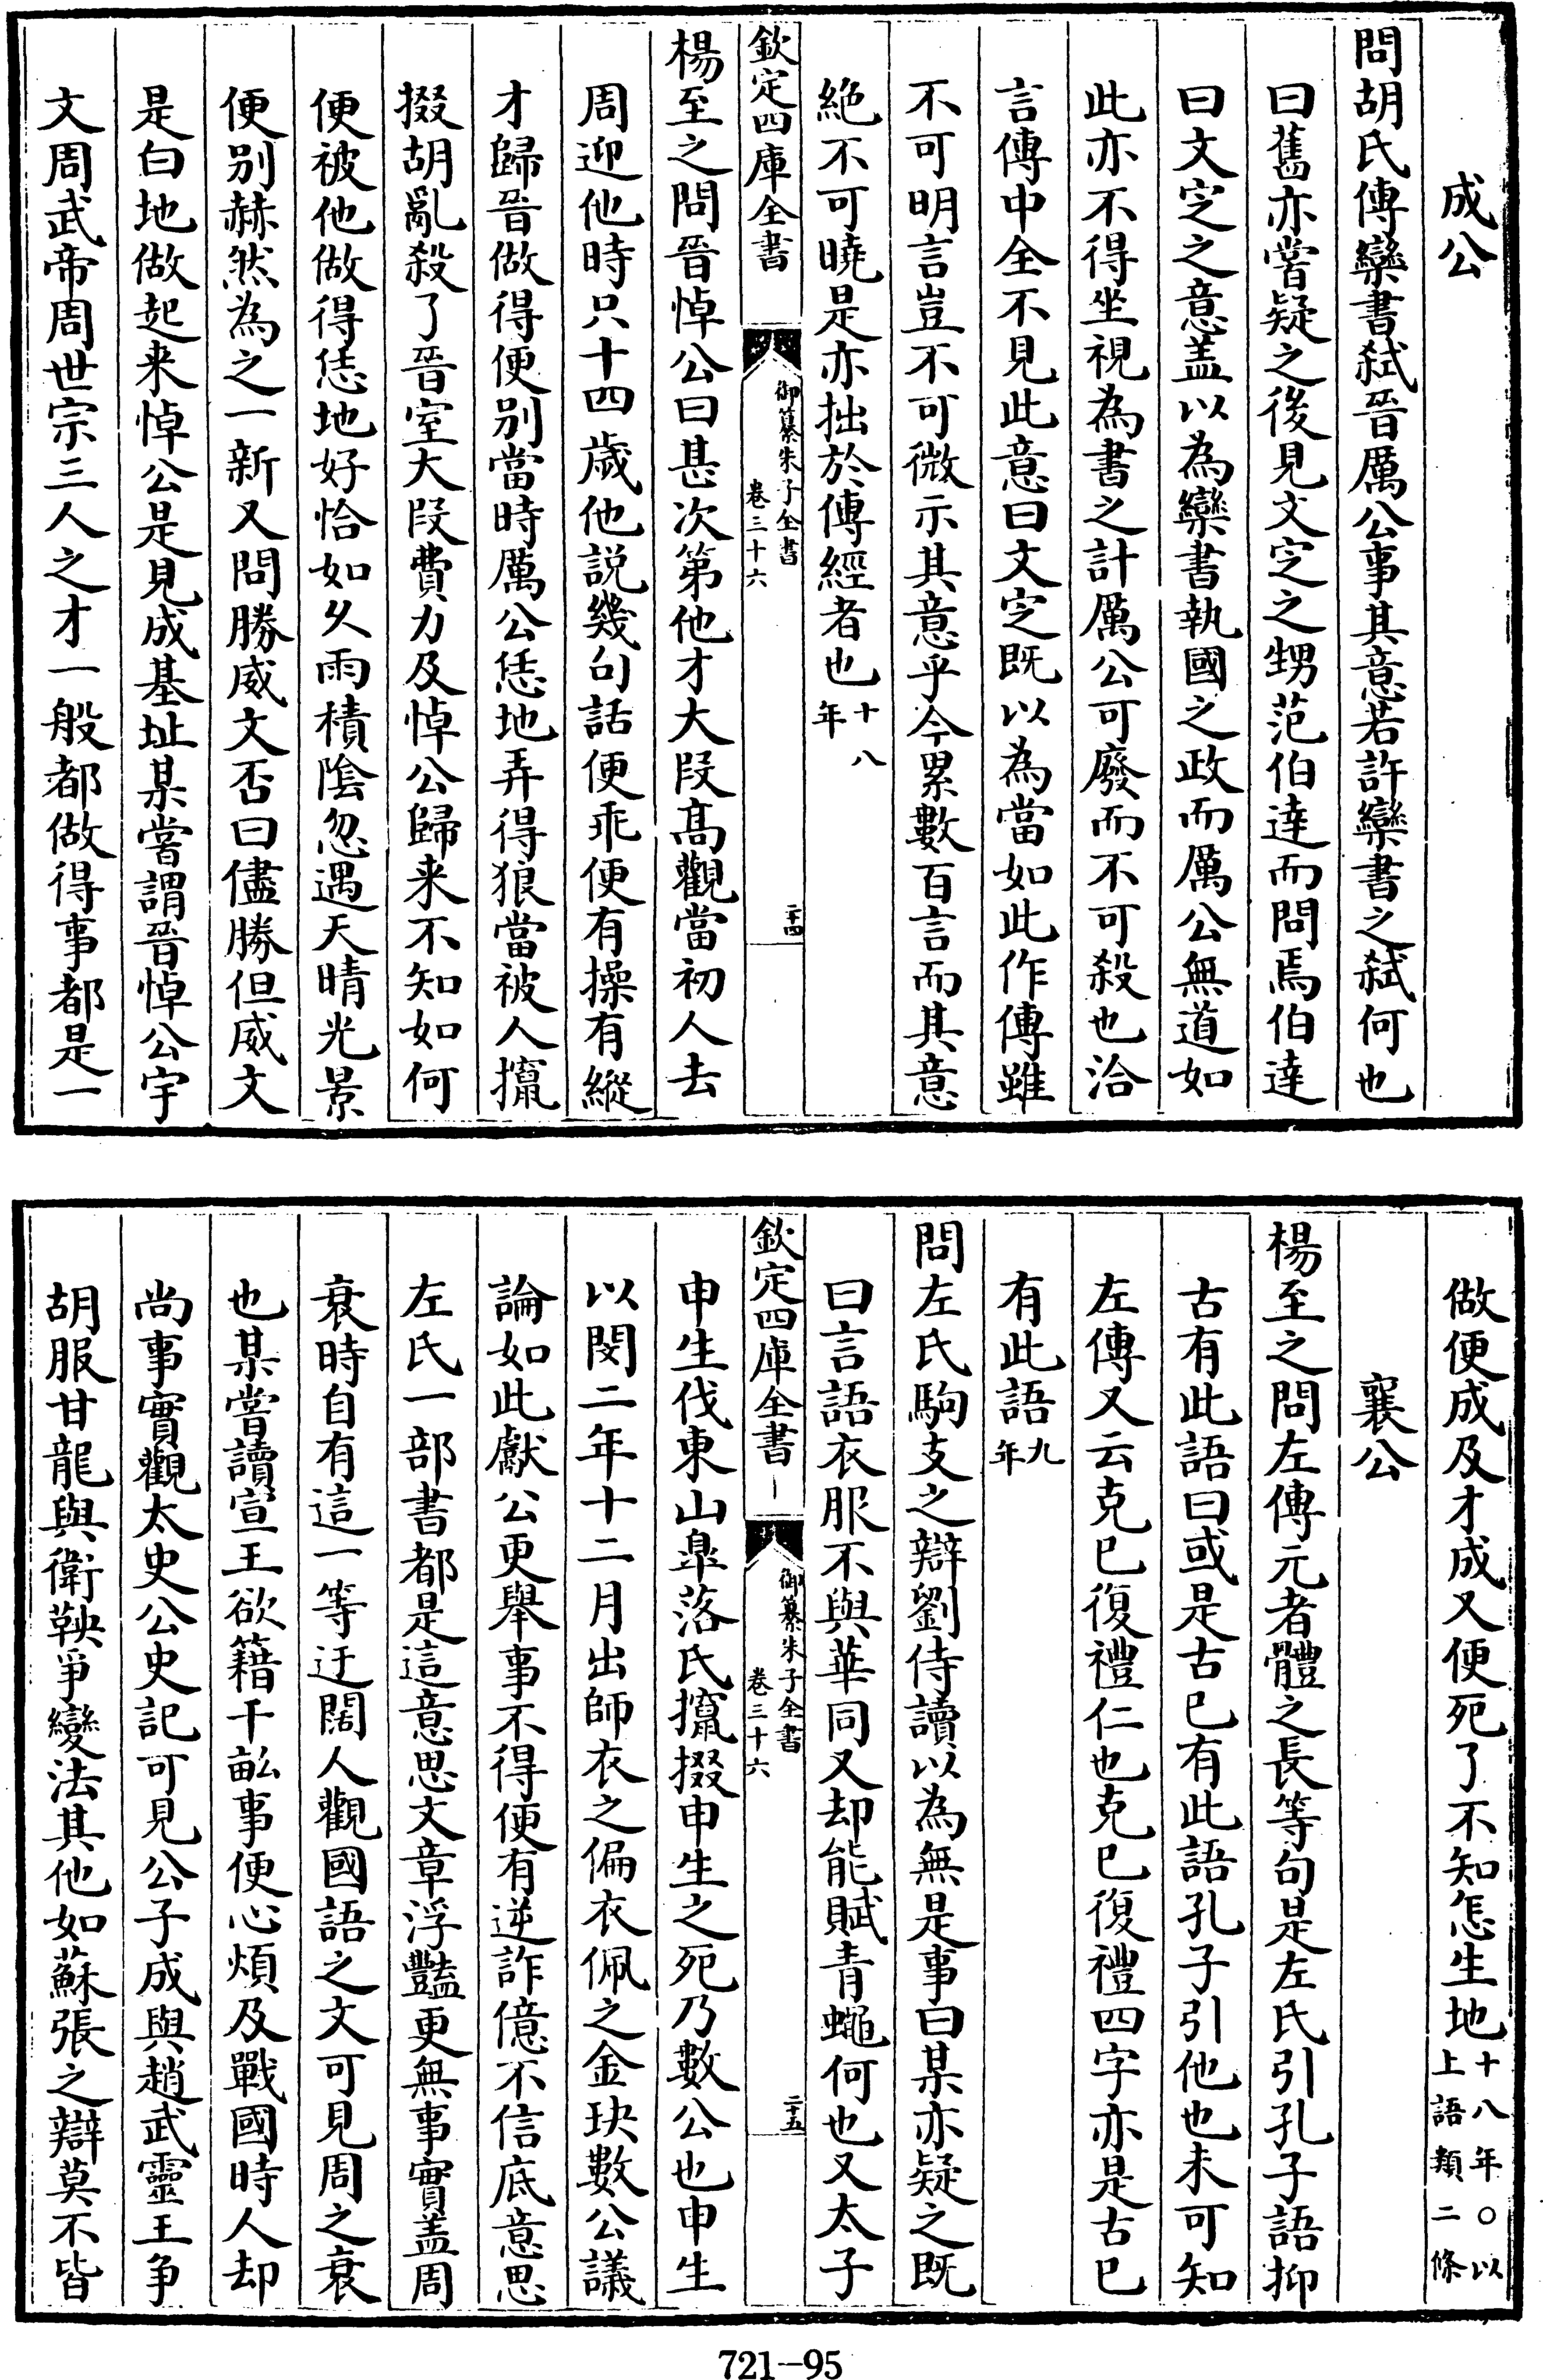 成公
問胡氏傳欒書弑晉厲公事其意若許欒書之弑何也
曰舊亦嘗疑之後見文定之甥范伯達而問焉伯達
曰文定之意盖以為欒書執國之政而厲公無道如
此亦不得坐視為書之計厲公可廢而不可殺也洽
言傳中全不見此意曰文定既以為當如此作傳雖
不可明言豈不可微示其意乎今累數百言而其意
絶不可曉是亦拙於傳經者也十八年
欽定四庫全書
御纂朱子全書
卷三十六
二十四
楊至之問晉悼公曰甚次第他才大段髙觀當初人去
周迎他時只十四歲他説幾句話便乖便有操有縱
才歸晉做得便别當時厲公恁地弄得狼當被人攛
掇胡亂殺了晉室大段費力及悼公歸来不知如何
便被他做得恁地好恰如久雨積隂忽遇天晴光景
便别赫然為之一新又問勝威文否曰儘勝但威文
是白地做起来悼公是見成基址某嘗謂晉悼公宇
文周武帝周世宗三人之才一般都做得事都是一
做便成及才成又便死了不知怎生地十八年○以上語類二條
襄公
楊至之問左傳元者體之長等句是左氏引孔子語抑
古有此語曰或是古已有此語孔子引他也未可知
左傳又云克已復禮仁也克已復禮四字亦是古已
有此語九年
問左氏駒支之辯劉侍讀以為無是事曰某亦疑之既
曰言語衣服不與華同又却能賦青蠅何也又太子
欽定四庫全書
御纂朱子全書
卷三十六
二十五
申生伐東山臯落氏攛掇申生之死乃數公也申生
以閔二年十二月出師衣之偏衣佩之金玦數公議
論如此獻公更舉事不得便有逆詐億不信底意思
左氏一部書都是這意思文章浮豔更無事實盖周
衰時自有這一等迂闊人觀國語之文可見周之衰
也某嘗讀宣王欲籍千畝事便心煩及戰國時人却
尚事實觀太史公史記可見公子成與趙武靈王争
胡服甘龍與衛鞅爭變法其他如蘇張之辯莫不皆
721-95